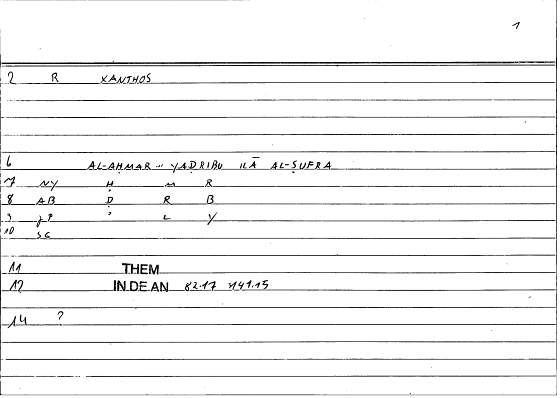 1
2 R XANTHOS
6 AL-AḤMAR ... YAḌRIBU ILĀ AL-ṢUFRA
7 NY Ḥ M R
8 AB Ḍ R B
9 JP ' L Y
10 SC
11 THEM
12 IN DE AN 82.17 141.15
14 ?